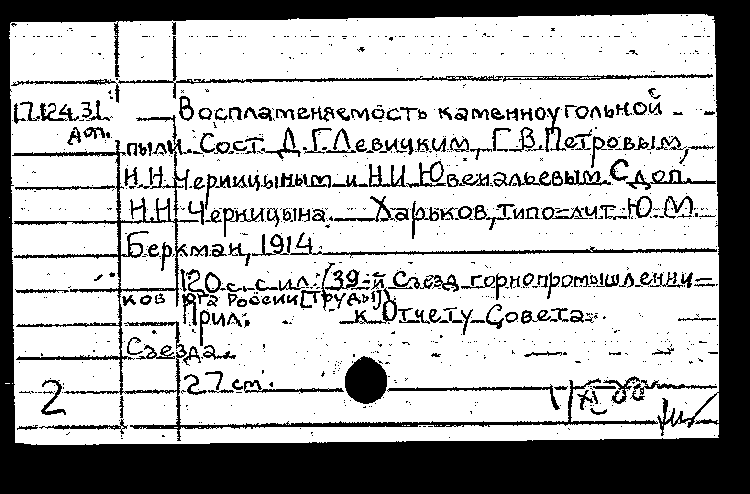 17.124.31 Воспламеняемость каменноугольной
доп. пыли. Сост. Д.Г.Левицким, Г.В.Петровым,
Н.Н.Черницыным и Н.И.Ювенальевым. С доп.
Н.Н.Черницына. Харьков, типо-лит. Ю.М.
Беркман, 1914.
120 с. с ил. (39-й Съезд горнопромышленни-
ков юга России [Труды]).
Прил. к Отчету Совета
Съезда.
27 см.
2